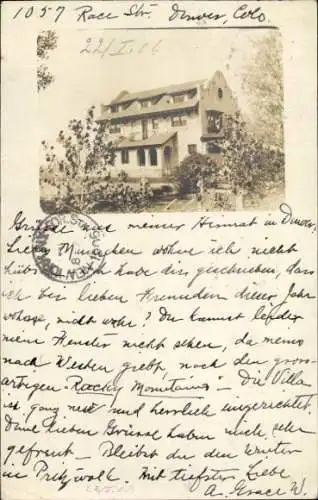 1057 Race Str. Denver, Colo.
22/I. 06
Grüsse aus meiner Heimat in Denver.
Liebes Mariechen wohne ich nicht
hübsch? Ich habe dir geschrieben, dass
ich bei lieben Freunden dieses Jahr
wohne, nicht wahr? Du kannst leider
mein Fenster nicht sehen, da meines
nach Westen giebt, nach den gross-
artigen Rocky Mountains. - Die Villa
ist ganz neu und herrlich eingerichtet.
Deine lieben Grüsse haben mich sehr
gefreut. - Bleibst du den Winter
in Pritzwalk. Mit tiefster Liebe
A. Grace W.